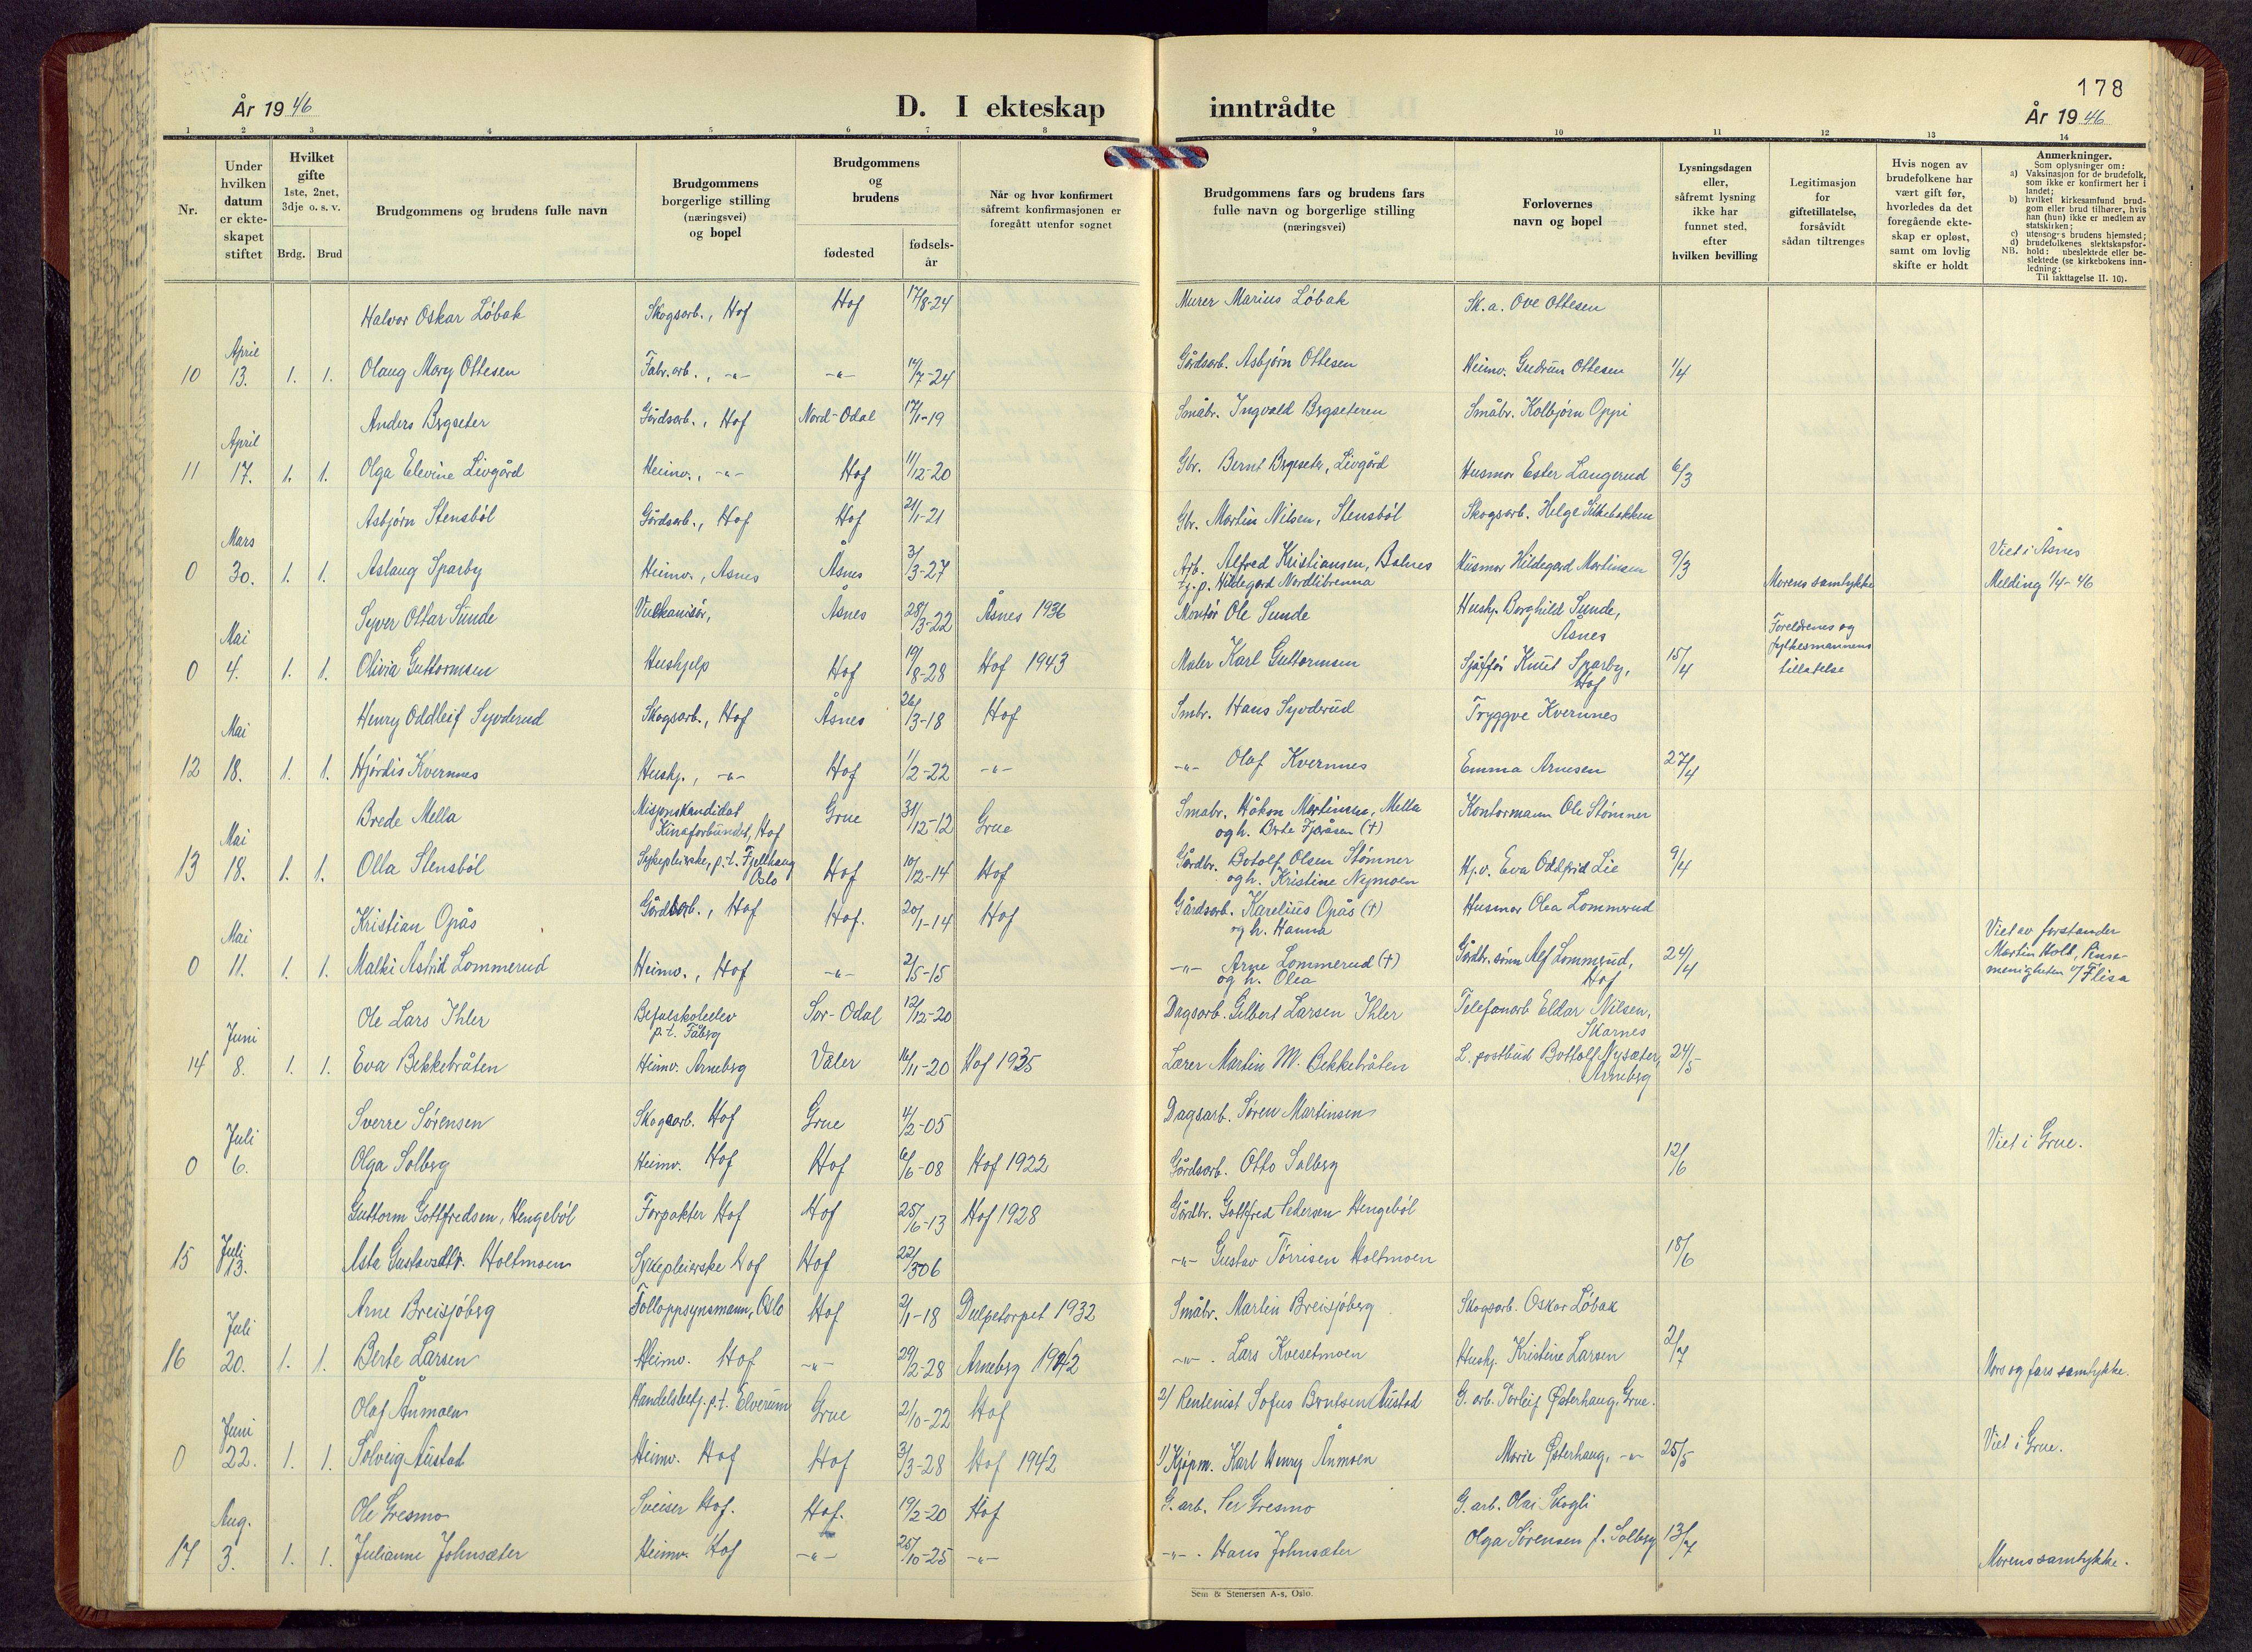 178
År 1946
D. I ekteskap inntrådte
År 1946
1 2 3 4 5 6 7 8 9 10 11 12 13 14
Nr.
Under hvilken datum er ekteskapet stiftet
Hvilket gifte 1ste, 2net, 3dje o. s. v.
Brdg. Brud
Brudgommens og brudens fulle navn
Brudgommens borgerlige stilling (næringsvei) og bopel
Brudgommens og brudens
fødested
fødsels-år
Når og hvor konfirmert såfremt konfirmasjonen er foregått utenfor sognet
Brudgommens fars og brudens fars fulle navn og borgerlige stilling (næringsvei)
Forlovernes navn og bopel
Lysningsdagen eller, såfremt lysning ikke har funnet sted, efter hvilken bevilling
Legitimasjon for giftetillatelse, forsåvidt sådan tiltrenges
Hvis nogen av brudefolkene har vært gift før, hvorledes da det foregående ekteskap er opløst, samt om lovlig skifte er holdt
Anmerkninger.
Som oplysninger om:
a) Vaksinasjon for de brudefolk, som ikke er konfirmert her i landet;
b) hvilket kirkesamfund brudgom eller brud tilhører, hvis han (hun) ikke er medlem av statskirken;
c) utensogns brudens hjemsted;
d) brudefolkenes slektskapsforhold: ubeslektede eller beslektede (se kirkebokens innledning:
NB. Til iakttagelse II. 10).
Halvor Oskar Löbak Skogsarb., Hof Hof 17/8-24 Murer Marius Löbak Sk.a. Ove Ottesen
10 April 13. 1. 1. Olaug Mary Ottesen Fabr.arb., -"- -"- 14/7-24 Gårdsarb. Asbjørn Ottesen Heimv. Gudrun Ottesen 1/4
Anders Bergseter Gårdsarb., Hof Nord-Odal 17/1-19 Småbr. Ingvald Bergseteren Småbr. Kolbjørn Oppi
11 April 17. 1. 1. Olga Elevine Livgård Heimv., -"- Hof 11/12-20 Gbr. Bernt Bergseter, Livgård Husmor Ester Langerud 6/3
Asbjørn Stensböl Gårdsarb., Hof Hof 21/1-21 Gbr. Martin Nilsen, Stensböl Skogsarb. Helge Silkebakken
0 Mars 30. 1. 1. Aslaug Sparby Heimv., Åsnes Åsnes 3/3-27 Arb. Alfred Kristiansen, Balnes Husmor Hildegard Martinsen 9/3 Viet i Åsnes
tj.p. Hildegard Nordlibrenna Morens samtykke Melding 1/4-46
Syver Ottar Sunde Vulkanisør, Åsnes 28/3-22 Åsnes 1936 Montør Ole Sunde Hushj. Borghild Sunde, Åsnes Foreldrenes og fylkesmannens tillatelse
0 Mai 4. 1. 1. Olivia Guttormsen Hushjelp Hof 19/8-28 Hof 1943 Maler Karl Guttormsen Sjåffør Knut Sparby, Hof 15/4
Henry Oddleif Syvderud Skogsarb., Hof Åsnes 26/3-18 Hof Smbr. Hans Syvderud Tryggve Kvernnes
12 Mai 18. 1. 1. Hjördis Kvernnes Hushj., -"- Hof 1/2-22 -"- -"- Olaf Kvernnes Emma Arnesen 27/4
Brede Mella Misjonskandidat Kinaforbundet, Hof Grue 31/12-12 Grue Småbr. Håkon Martinsen, Mella og h. Berte Fjeråsen (+) Kontormann Ole Stömner
13 Mai 18. 1. 1. Olla Stensböl Sykepleierske, p.t. Fjellhaug Oslo Hof 10/12-14 Hof Gårdbr. Botolf Olsen Stömner og h. Kristine Nymoen Hj.v. Eva Oddfrid Lie 9/4
Kristian Opås Gårdsarb., Hof Hof. 20/1-14 Hof Gårdsarb. Karelius Opås (+) og h. Hanna Husmor Olea Lommerud
0 Mai 11. 1. 1. Malki Astrid Lommerud Heimv., Hof -"- 2/5-15 -"- Arne Lommerud (+) og h. Olea Gårdbr. sönn Alf Lommerud, Hof 24/4 Viet av forstander Martin Holt, Pinsemenigheten i/ Flisa
Ole Lars Ihler Befalskoleelev p.t. Fåberg Sør-Odal 12/12-20 Dagsarb. Gilbert Larsen Ihler Telefonarb Eldar Nilsen, Skarnes
14 Juni 8. 1. 1. Eva Bekkebråten Heimv. Arneberg Våler 16/11-20 Hof 1935 Lærer Martin M. Bekkebråten L. postbud Bottolf Nysæter, Arneberg 24/5
Sverre Sörensen Skogsarb. Hof Grue 4/2-05 Dagsarb. Sören Martinsen
0 Juli 6. Olga Solberg Heimv. Hof Hof 6/6-08 Hof 1922 Gårdsarb. Otto Solberg 12/6 Viet i Grue.
Guttorm Gottfredsen, Hengeböl Forpakter Hof Hof 25/6-13 Hof 1928 Gårdbr. Gottfred Pedersen Hengeböl
15 Juli 13. Asta Gustavsdtr. Holtmoen Sykepleierske Hof Hof 22/3 06 -"- Gustav Torrisen Holtmoen 18/6
Arne Breisjöberg Tolloppsynsmann, Oslo Hof 2/1-18 Dulpetorpet 1932 Småbr. Martin Breisjöberg Skogsarb. Oskar Löbak
16 Juli 20. 1. 1. Berte Larsen Heimv. Hof -"- 29/2-28 Arneberg 1942 -"-. Lars Kvesetmoen Hushj. Kristine Larsen 2/7 Mors og fars samtykke.
Olaf Ånmoen Handelsbetj. p.t. Elverum Grue 2/10-22 Hof 2/ Rentenist Sofus Berntsen Austad G. arb. Torleif Østerhaug, Grue.
0 Juni 22. 1. 1. Solveig Austad Heimv. Hof Hof 3/3-28 Hof 1942 1/ Kjøpm. Karl Henry Ånmoen Marie Østerhaug, -"- 25/5 Viet i Grue.
Ole Gresmo Sveiser Hof. Hof. 19/2-20 Hof G. arb. Per Gresmo G. arb. Olai Skogli
17 Aug. 3. 1. 1. Julianne Johnsæter Heimv. Hof -"- 25/10-25 -"- -"-. Hans Johnsæter Olga Sörensen f. Solberg 13/7 Morens samtykke.
Sem & Stenersen A-s, Oslo.